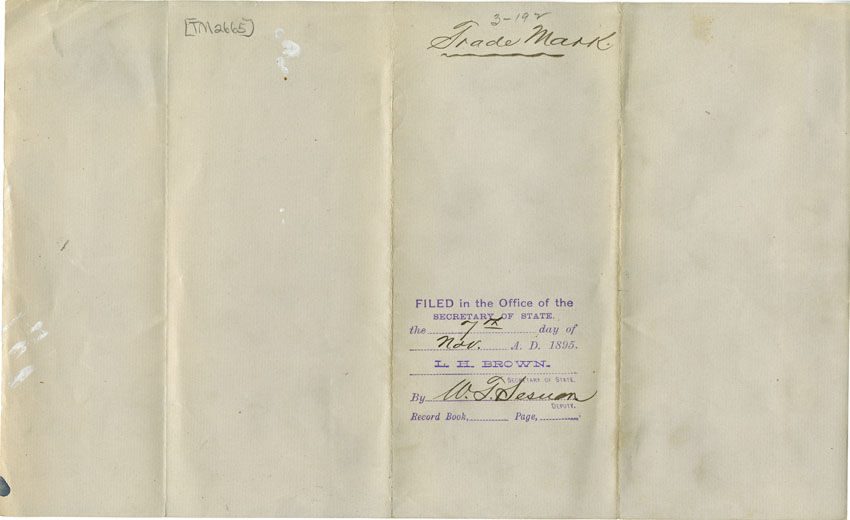 [TM2665]
3-192
Trade Mark.
FILED in the Office of the
SECRETARY OF STATE.
the 7th day of
Nov. A. D. 1895.
L. H. BROWN.
SECRETARY OF STATE.
By W. T.
DEPUTY.
Record Book, Page,